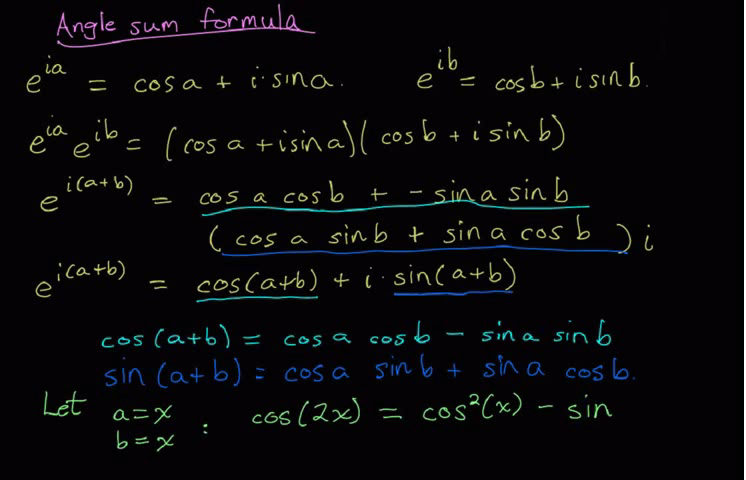 Angle sum formula
e^{ia} = cos a + i·sin a. e^{ib} = cos b + i sin b.
e^{ia} e^{ib} = (cos a + i sin a)(cos b + i sin b)
e^{i(a+b)} = cos a cos b + - sin a sin b
(cos a sin b + sin a cos b) i
e^{i(a+b)} = cos(a+b) + i·sin(a+b)
cos(a+b) = cos a cos b - sin a sin b
sin(a+b) = cos a sin b + sin a cos b.
Let a=x : cos(2x) = cos²(x) - sin
b=x